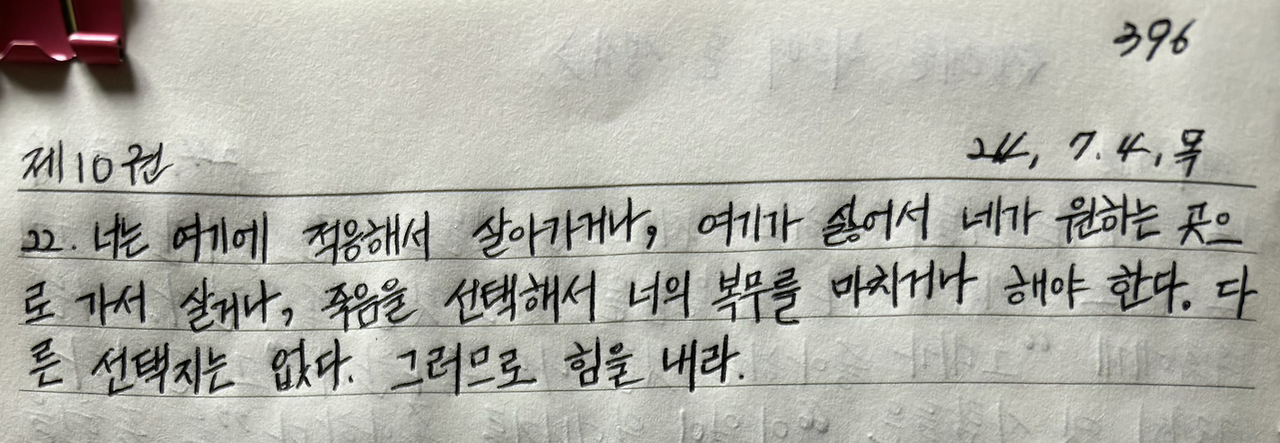 396
제10권 24, 7. 4, 목
22. 너는 여기에 적응해서 살아가거나, 여기가 싫어서 네가 원하는 곳으
로 가서 살거나, 죽음을 선택해서 너의 복무를 마치거나 해야 한다. 다
른 선택지는 없다. 그러므로 힘을 내라.